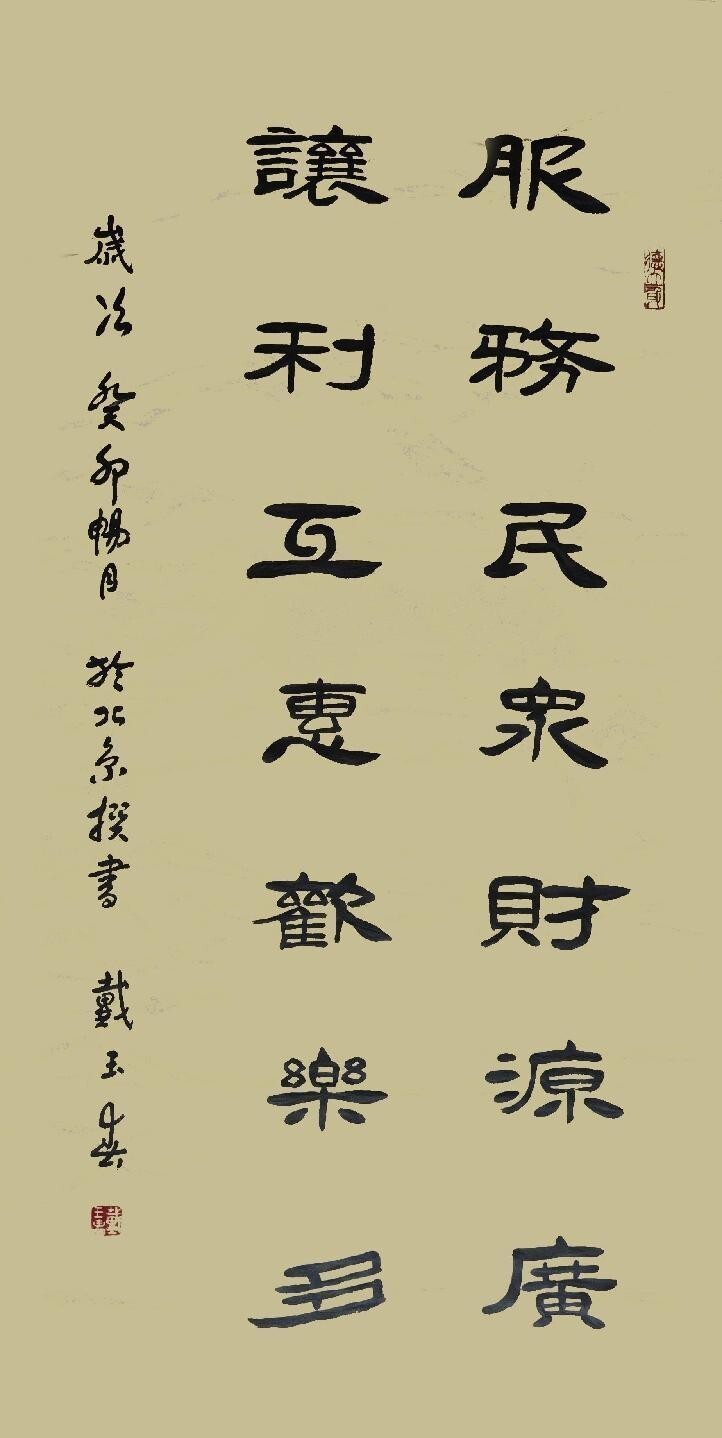 服務民眾財源廣
讓利互惠歡樂多
歲次癸卯暢月於北京撰書戴玉春